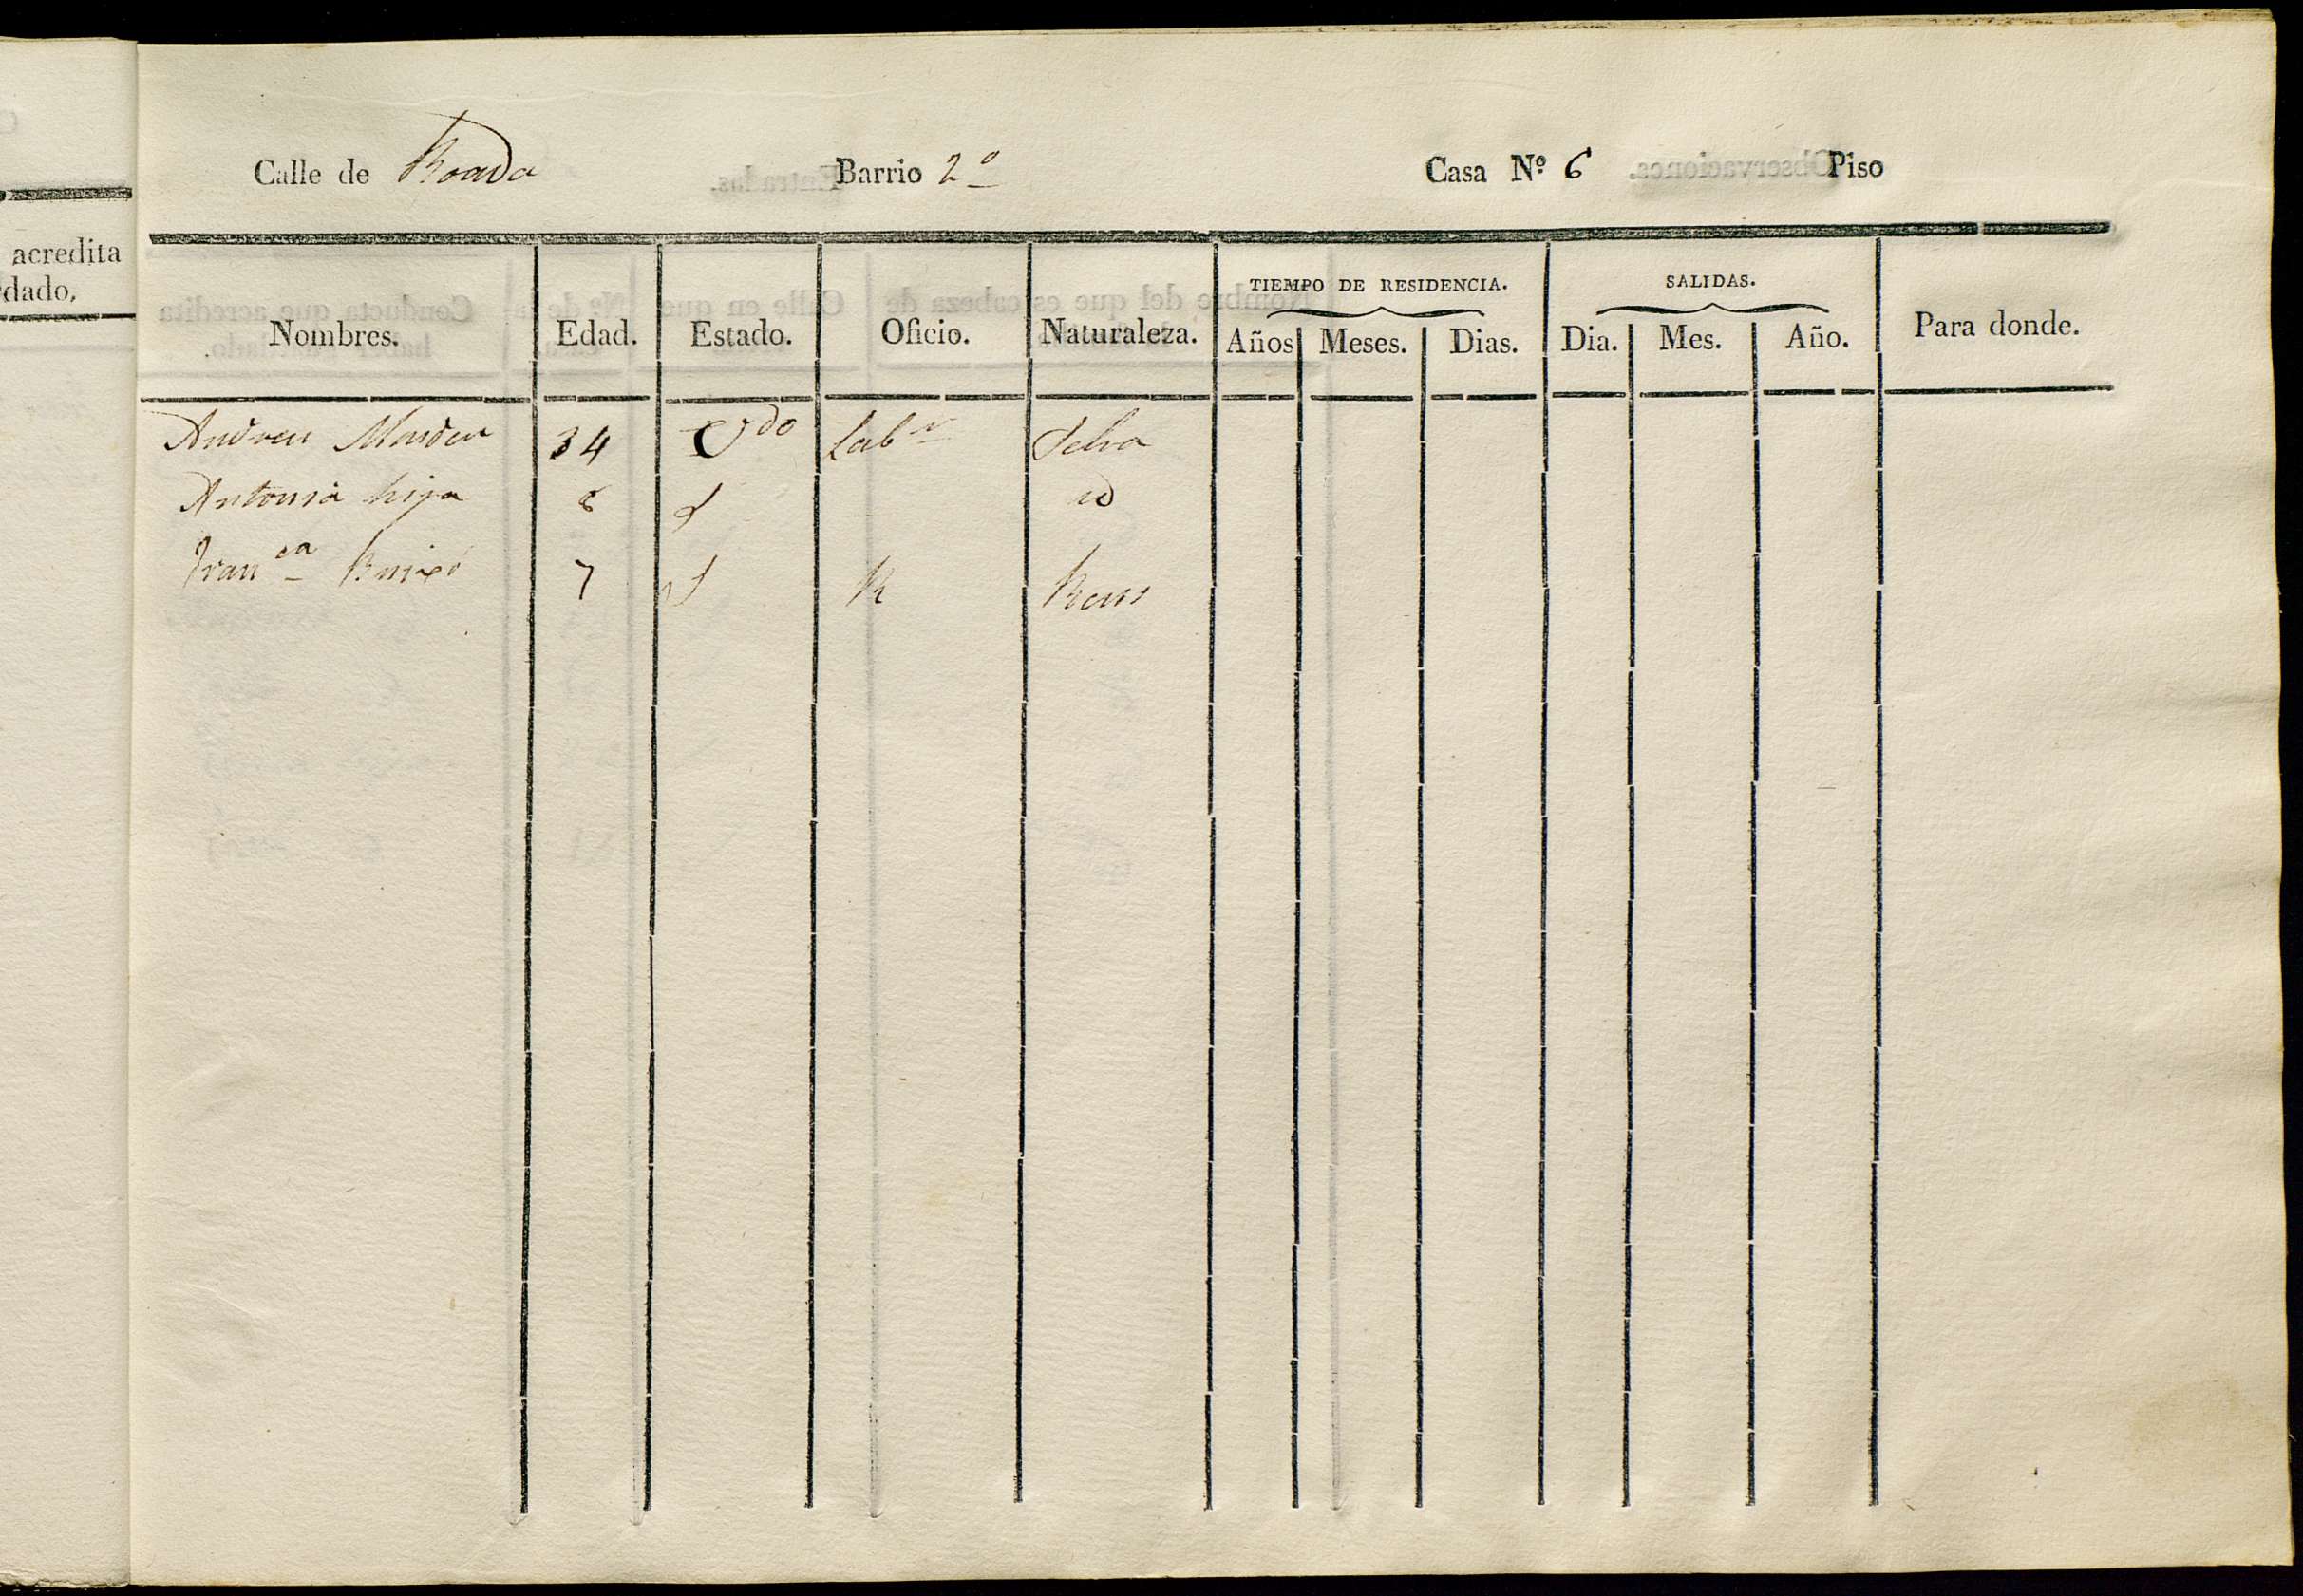 acredita
dado,
Calle de Roada Barrio 2º Casa Nº 6 Piso
TIEMPO DE RESIDENCIA. SALIDAS.
Nombres. Edad. Estado. Oficio. Naturaleza. Años Meses. Dias. Dia. Mes. Año. Para donde.
Andreu 34 Vdo Labr Selva
Antonia hija 8 S id
Franca 7 S R Reus